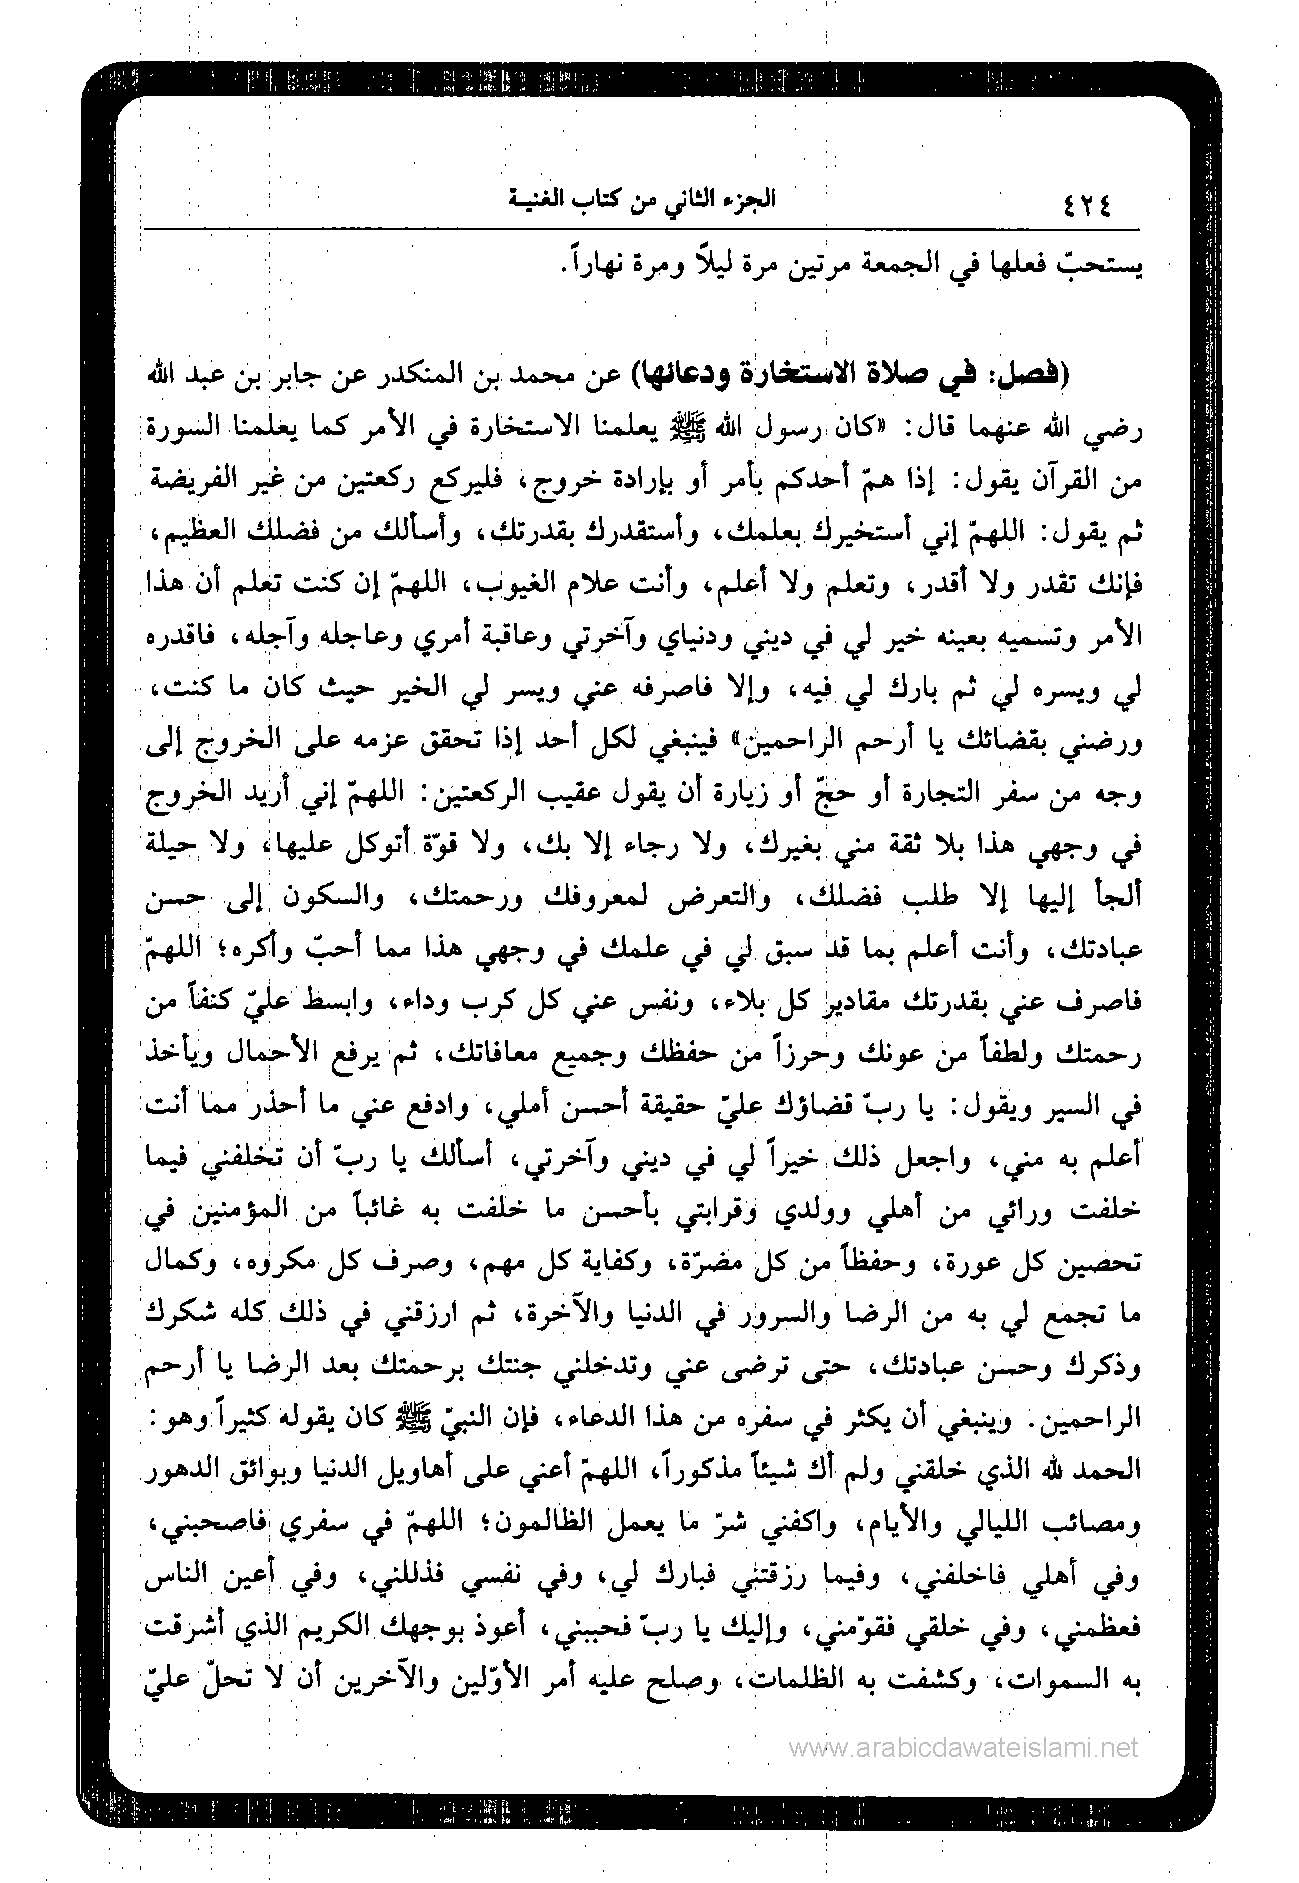 ٤٢٤
الجزء الثاني من كتاب الغنية
يستحبّ فعلها في الجمعة مرتين مرة ليلاً ومرة نهاراً.
(فصل: في صلاة الاستخارة ودعائها) عن محمد بن المنكدر عن جابر بن عبد الله
رضي الله عنهما قال: «كان رسول الله ﷺ يعلمنا الاستخارة في الأمر كما يعلمنا السورة
من القرآن يقول: إذا همّ أحدكم بأمر أو بإرادة خروج، فليركع ركعتين من غير الفريضة
ثم يقول: اللهمّ إني أستخيرك بعلمك، وأستقدرك بقدرتك، وأسألك من فضلك العظيم،
فإنك تقدر ولا أقدر، وتعلم ولا أعلم، وأنت علام الغيوب، اللهمّ إن كنت تعلم أن هذا
الأمر وتسميه بعينه خير لي في ديني ودنياي وآخرتي وعاقبة أمري وعاجله وآجله، فاقدره
لي ويسره لي ثم بارك لي فيه، وإلا فاصرفه عني ويسر لي الخير حيث كان ما كنت،
ورضني بقضائك يا أرحم الراحمين» فينبغي لكل أحد إذا تحقق عزمه على الخروج إلى
وجه من سفر التجارة أو حجّ أو زيارة أن يقول عقيب الركعتين: اللهمّ إني أريد الخروج
في وجهي هذا بلا ثقة مني بغيرك، ولا رجاء إلا بك، ولا قوّة أتوكل عليها، ولا حيلة
ألجأ إليها إلا طلب فضلك، والتعرض لمعروفك ورحمتك، والسكون إلى حسن
عبادتك، وأنت أعلم بما قد سبق لي في علمك في وجهي هذا مما أحبّ وأكره؛ اللهمّ
فاصرف عني بقدرتك مقادير كل بلاء، ونفس عني كل كرب وداء، وابسط عليّ كنفاً من
رحمتك ولطفاً من عونك وحرزاً من حفظك وجميع معافاتك، ثم يرفع الأحمال ويأخذ
في السير ويقول: يا ربّ قضاؤك عليّ حقيقة أحسن أملي، وادفع عني ما أحذر مما أنت
أعلم به مني، واجعل ذلك خيراً لي في ديني وآخرتي، أسألك يا ربّ أن تخلفني فيما
خلفت ورائي من أهلي وولدي وقرابتي بأحسن ما خلفت به غائباً من المؤمنين في
تحصين كل عورة، وحفظاً من كل مضرّة، وكفاية كل مهم، وصرف كل مكروه، وكمال
ما تجمع لي به من الرضا والسرور في الدنيا والآخرة، ثم ارزقني في ذلك كله شكرك
وذكرك وحسن عبادتك، حتى ترضى عني وتدخلني جنتك برحمتك بعد الرضا يا أرحم
الراحمين. وينبغي أن يكثر في سفره من هذا الدعاء، فإن النبيّ ﷺ كان يقوله كثيراً وهو:
الحمد لله الذي خلقني ولم أك شيئاً مذكوراً، اللهمّ أعني على أهاويل الدنيا وبوائق الدهور
ومصائب الليالي والأيام، واكفني شرّ ما يعمل الظالمون؛ اللهمّ في سفري فاصحبني،
وفي أهلي فاخلفني، وفيما رزقتني فبارك لي، وفي نفسي فذللني، وفي أعين الناس
فعظمني، وفي خلقي فقوّمني، وإليك يا ربّ فحببني، أعوذ بوجهك الكريم الذي أشرقت
به السموات، وكشفت به الظلمات، وصلح عليه أمر الأوّلين والآخرين أن لا تحلّ عليّ
www.arabicdawateislami.net